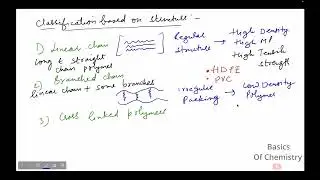 Classification based on structure :-
1) Linear chain
long & straight
chain polymer
Regular
structure
High Density
High MP
High Tensile
strength
• HDPE
• PVC
2) Branched chain
linear chain + some branches
irregular
Packing
Low Density
Polymer
3) Cross linked polymers
Basics
Of Chemistry